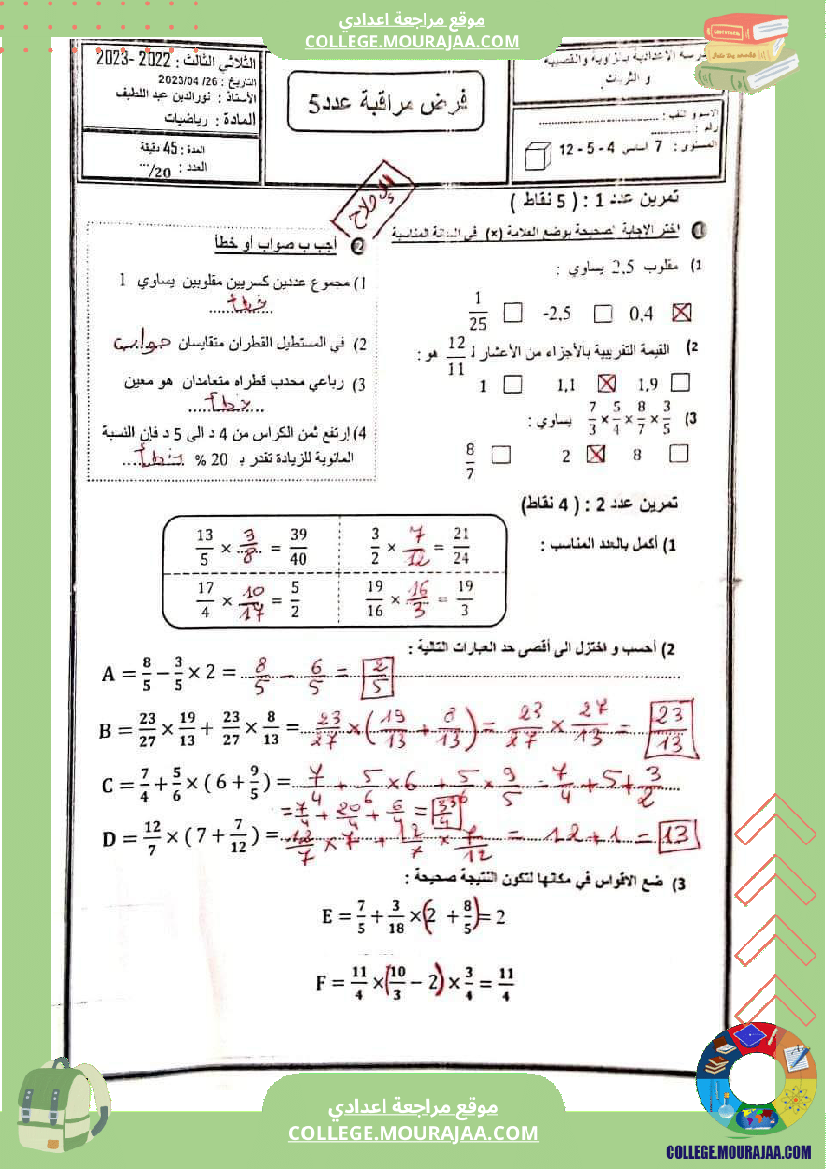 موقع مراجعة اعدادي
COLLEGE.MOURAJAA.COM
المدرسة الاعدادية بالزاوية والقصيبة
و الثريات.
الاسم و اللقب : ...............
رقم : ...............
المستوى : 7 أساسي 4 - 5 - 12
فرض مراقبة عدد5
الثلاثي الثالث : 2022 -2023
التاريخ : 26/ 04/2023
الأستاذ : نورالدين عبد اللطيف
المادة : رياضيات
المدة : 45 دقيقة
العدد : .../20
الإصلاح
تمرين عدد 1 : ( 5 نقاط )
❶ اختر الاجابة الصحيحة بوضع العلامة (x) في الخانة المناسبة
1) مقلوب 2,5 يساوي :
☒ 0,4 ☐ -2,5 ☐ 1/25
2) القيمة التقريبية بالأجزاء من الأعشار لـ 12/11 هو :
☐ 1,9 ☒ 1,1 ☐ 1
3) 7/3 × 5/4 × 8/7 × 3/5 يساوي :
☐ 8 ☒ 2 ☐ 8/7
❷ أجب ب صواب أو خطأ
1) مجموع عددين كسريين مقلوبين يساوي 1
خطأ
2) في المستطيل القطران متقايسان صواب
3) رباعي محدب قطراه متعامدان هو معين
خطأ
4) إرتفع ثمن الكراس من 4 د الى 5 د فإن النسبة
المائوية للزيادة تقدر ب 20 % خطأ
تمرين عدد 2 : ( 4 نقاط)
1) أكمل بالعدد المناسب :
13/5 × 3/8 = 39/40 3/2 × 7/12 = 21/24
17/4 × 10/17 = 5/2 19/16 × 16/3 = 19/3
2) أحسب و اختزل الى أقصى حد العبارات التالية :
A = 8/5 − 3/5 × 2 = 8/5 − 6/5 = 2/5
B = 23/27 × 19/13 + 23/27 × 8/13 = 23/27 × (19/13 + 8/13) = 23/27 × 27/13 = 23/13
C = 7/4 + 5/6 × ( 6 + 9/5 ) = 7/4 + 5/6 × 6 + 5/6 × 9/5 = 7/4 + 5 + 3/2
= 7/4 + 20/4 + 6/4 = 33/4
D = 12/7 × ( 7 + 7/12 ) = 12/7 × 7 + 12/7 × 7/12 = 12 + 1 = 13
3) ضع الاقواس في مكانها لتكون النتيجة صحيحة :
E = 7/5 + 3/18 × (2 + 8/5) = 2
F = 11/4 × (10/3 − 2) × 3/4 = 11/4
موقع مراجعة اعدادي
COLLEGE.MOURAJAA.COM
COLLEGE.MOURAJAA.COM